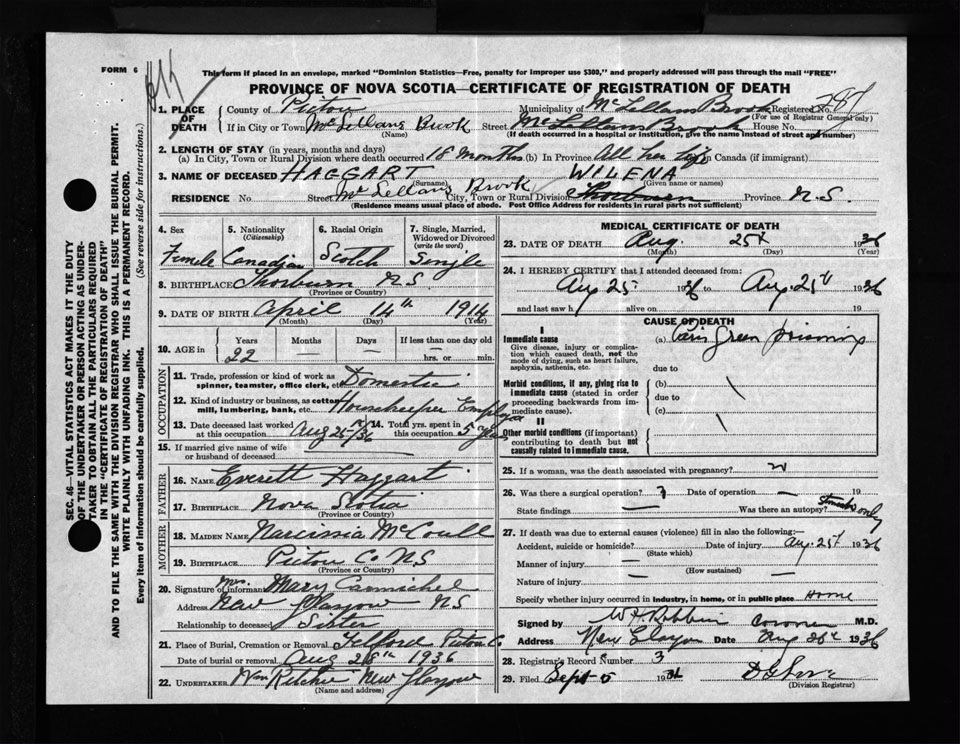 FORM 6
This form if placed in an envelope, marked "Dominion Statistics—Free, penalty for improper use $300," and properly addressed will pass through the mail "FREE"
PROVINCE OF NOVA SCOTIA—CERTIFICATE OF REGISTRATION OF DEATH
1. PLACE OF DEATH
County of Pictou Municipality of McLellans Brook Registered No. 287
(For use of Registrar General only)
If in City or Town McLellans Brook Street McLellans Brook House No.
(Name) (If death occurred in a hospital or institution, give the name instead of street and number)
2. LENGTH OF STAY (in years, months and days)
(a) In City, Town or Rural Division where death occurred 18 months (b) In Province All her life in Canada (if immigrant)
3. NAME OF DECEASED HAGGART WILENA
(Surname) (Given name or names)
RESIDENCE No Street McLellans Brook City, Town or Rural Division Thorburn Province N.S.
(Residence means usual place of abode. Post Office Address for residents in rural parts not sufficient)
4. Sex 5. Nationality (Citizenship) 6. Racial Origin 7. Single, Married, Widowed or Divorced (write the word)
Female Canadian Scotch Single
8. BIRTHPLACE Thorburn NS
(Province or Country)
9. DATE OF BIRTH April 14th 1914
(Month) (Day) (Year)
10. AGE in Years Months Days If less than one day old
22 — — — hrs. or — min.
OCCUPATION
11. Trade, profession or kind of work as spinner, teamster, office clerk, etc. Domestic
12. Kind of industry or business, as cotton mill, lumbering, bank, etc. Housekeeper Employed
13. Date deceased last worked at this occupation Aug 25th/36 14. Total yrs. spent in this occupation 5 years
15. If married give name of wife or husband of deceased
FATHER
16. NAME Everett Haggart
17. BIRTHPLACE Nova Scotia
(Province or Country)
MOTHER
18. MAIDEN NAME Narcissia McCoull
19. BIRTHPLACE Pictou Co NS
(Province or Country)
20. Signature of informant Mrs. Mary Carmichel
Address New Glasgow NS
Relationship to deceased Sister
21. Place of Burial, Cremation or Removal Telford Pictou Co
Date of burial or removal Aug 28th 1936
22. UNDERTAKER Wm Ritchie New Glasgow
(Name and address)
MEDICAL CERTIFICATE OF DEATH
23. DATE OF DEATH Aug. 25th 1936
(Month) (Day) (Year)
24. I HEREBY CERTIFY that I attended deceased from:
Aug 25th 1936 to Aug. 25th 1936
and last saw h alive on 19
CAUSE OF DEATH
I
Immediate cause
Give disease, injury or complication which caused death, not the mode of dying, such as heart failure, asphyxia, asthenia, etc.
(a) Paris Green poisoning
due to
Morbid conditions, if any, giving rise to immediate cause (stated in order proceeding backwards from immediate cause).
(b)
due to
(c)
II
Other morbid conditions (if important) contributing to death but not causally related to immediate cause.
25. If a woman, was the death associated with pregnancy?
26. Was there a surgical operation? ? Date of operation — 19
State findings — Was there an autopsy? Stomach only
27. If death was due to external causes (violence) fill in also the following:
Accident, suicide or homicide? — Date of injury Aug. 25th 1936
(State which)
Manner of injury —
(How sustained)
Nature of injury —
Specify whether injury occurred in industry, in home, or in public place Home
Signed by W H Robbins coroner M.D.
Address New Glasgow Date Aug 26th 1936
28. Registrar's Record Number 3
29. Filed Sept 5 1936
(Division Registrar)
SEC. 46—VITAL STATISTICS ACT MAKES IT THE DUTY
OF THE UNDERTAKER OR PERSON ACTING AS UNDER-
TAKER TO OBTAIN ALL THE PARTICULARS REQUIRED
IN THE "CERTIFICATE OF REGISTRATION OF DEATH"
AND TO FILE THE SAME WITH THE DIVISION REGISTRAR WHO SHALL ISSUE THE BURIAL PERMIT.
WRITE PLAINLY WITH UNFADING INK. THIS IS A PERMANENT RECORD.
Every item of information should be carefully supplied. (See reverse side for instructions.)